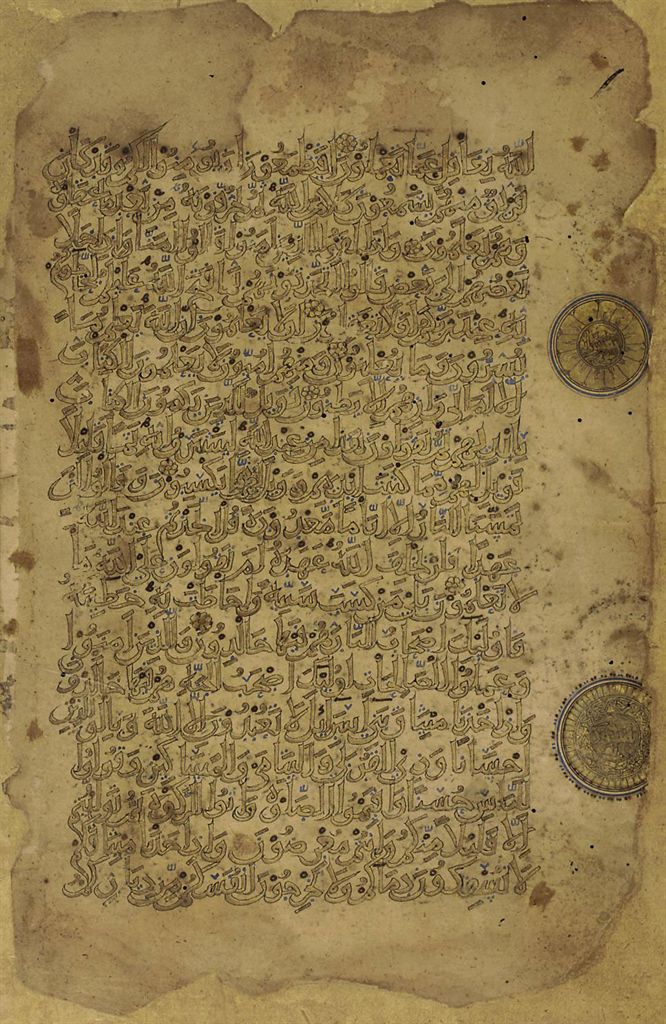 الله بغافل عما تعملون افتطمعون ان يؤمنوا لكم وقد كان
فريق منهم يسمعون كلام الله ثم يحرفونه من بعد ما عقلوه
وهم يعلمون واذا لقوا الذين امنوا قالوا امنا واذا خلا
بعضهم الى بعض قالوا اتحدثونهم بما فتح الله عليكم ليحاجوكم
به عند ربكم افلا تعقلون اولا يعلمون ان الله يعلم ما
يسرون وما يعلنون ومنهم اميون لا يعلمون الكتاب
الا اماني وان هم الا يظنون فويل للذين يكتبون الكتاب
بايديهم ثم يقولون هذا من عند الله ليشتروا به ثمنا قليلا
فويل لهم مما كتبت ايديهم وويل لهم مما يكسبون وقالوا لن
تمسنا النار الا اياما معدودة قل اتخذتم عند الله
عهدا فلن يخلف الله عهده ام تقولون على الله ما
لا تعلمون بلى من كسب سيئة واحاطت به خطيئته
فاولئك اصحاب النار هم فيها خالدون والذين امنوا
وعملوا الصالحات اولئك اصحب الجنة هم فيها خالدون
واذ اخذنا ميثاق بني اسرائيل لا تعبدون الا الله وبالوالدين
احسانا وذي القربى واليتامى والمساكين وقولوا
للناس حسنا واقيموا الصلاة واتوا الزكوة ثم توليتم
الا قليلا منكم وانتم معرضون واذ اخذنا ميثاقكم
لا تسفكون دماءكم ولا تخرجون انفسكم من دياركم